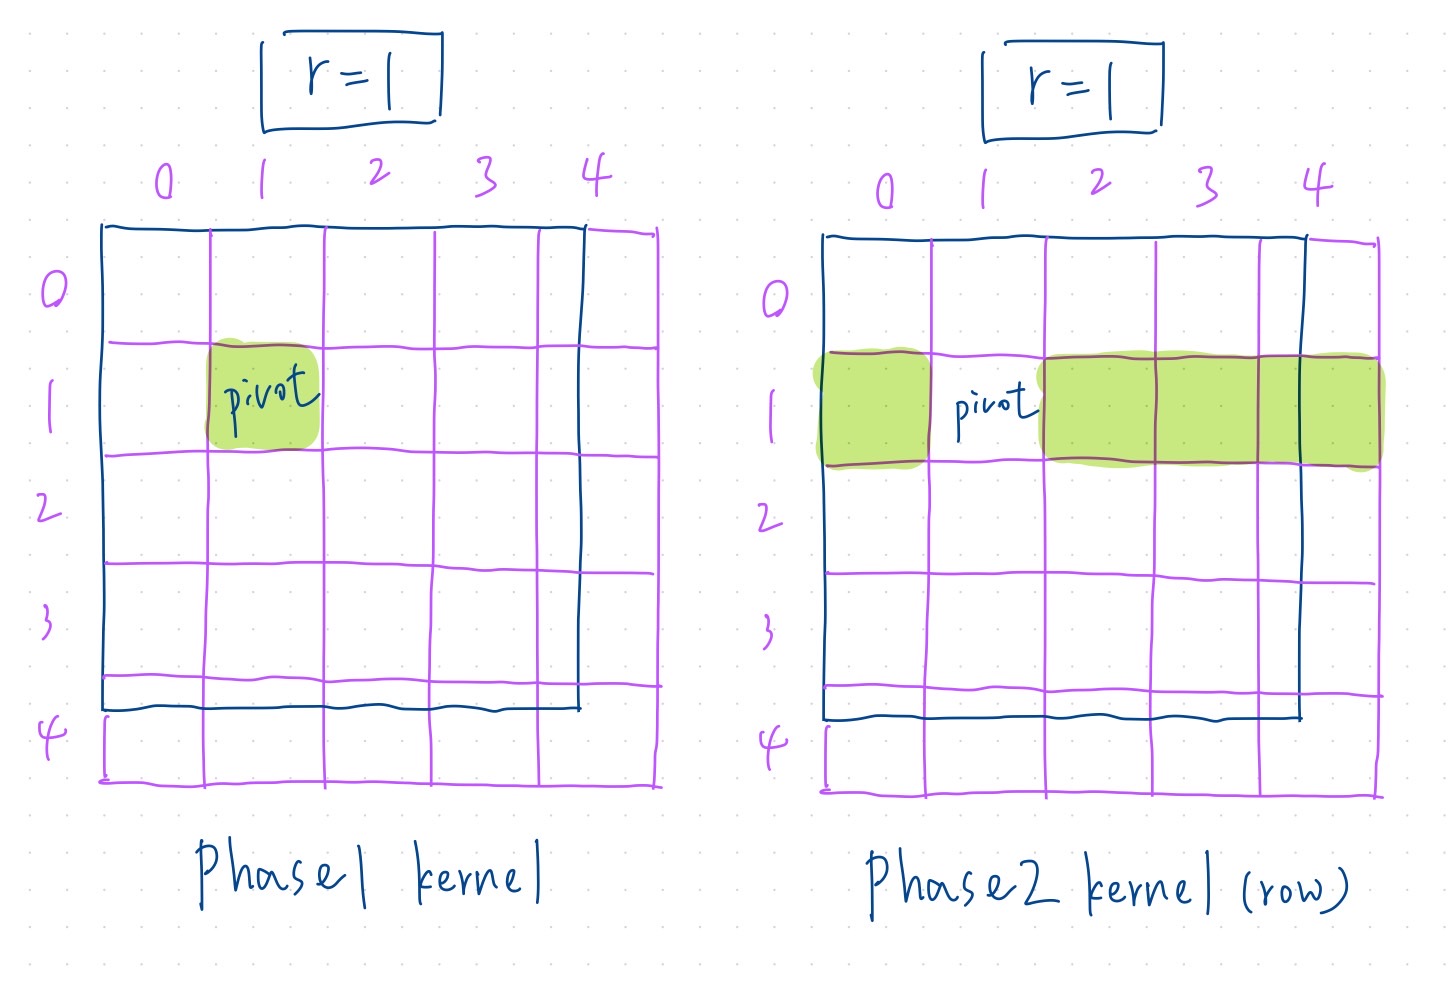 r=1
0 1 2 3 4
0
1 pivot
2
3
4
Phase1 kernel
r=1
0 1 2 3 4
0
1 pivot
2
3
4
Phase2 kernel (row)